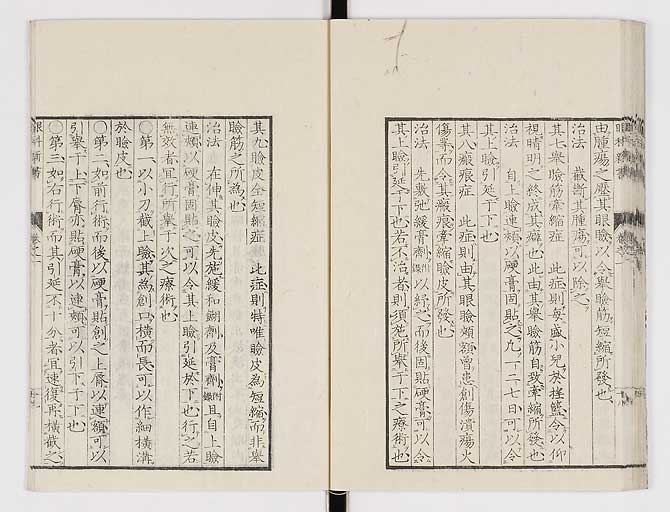 由腫瘍之壓其眼瞼以令舉瞼筋短縮所發也
治法　截斷其腫瘍可以除之
其七舉瞼筋牽縮症　此症則每盛小兒於搖籃令以仰
視晴明之終成其癖也此由其舉瞼筋自致牽縮所發也
治法　自上瞼連頰以硬膏固貼之凡一二七日可以令
其上瞼引延于下也
其八瘢痕症　此症則由其眼瞼頰額曾患創傷潰瘍火
傷等而令其瘢痕牽縮瞼皮所發也
治法　先敷弛緩膏劑附錄以紓之而後固貼硬膏可以令
其上瞼引延于下也若不治者則須施所舉于下之療術也
其九瞼皮全短縮症　此症則特唯瞼皮為短縮而非舉
瞼筋之所為也
治法　在伸其瞼皮先施緩和餬劑及膏劑附錄且自上瞼
連頰以硬膏固貼之可以令其上瞼引延於下也行之若
無效者宜行所舉于次之療術也
○第一以小刀截上瞼其為創口橫而長可以作細橫溝
於瞼皮也
○第二如前行術而後以硬膏貼創之上脣以連額可以
引舉于上下脣亦貼硬膏以連頰可以引下于下也
○第三如右行術而其引延不十分者宜速復再橫截之
眼科新書